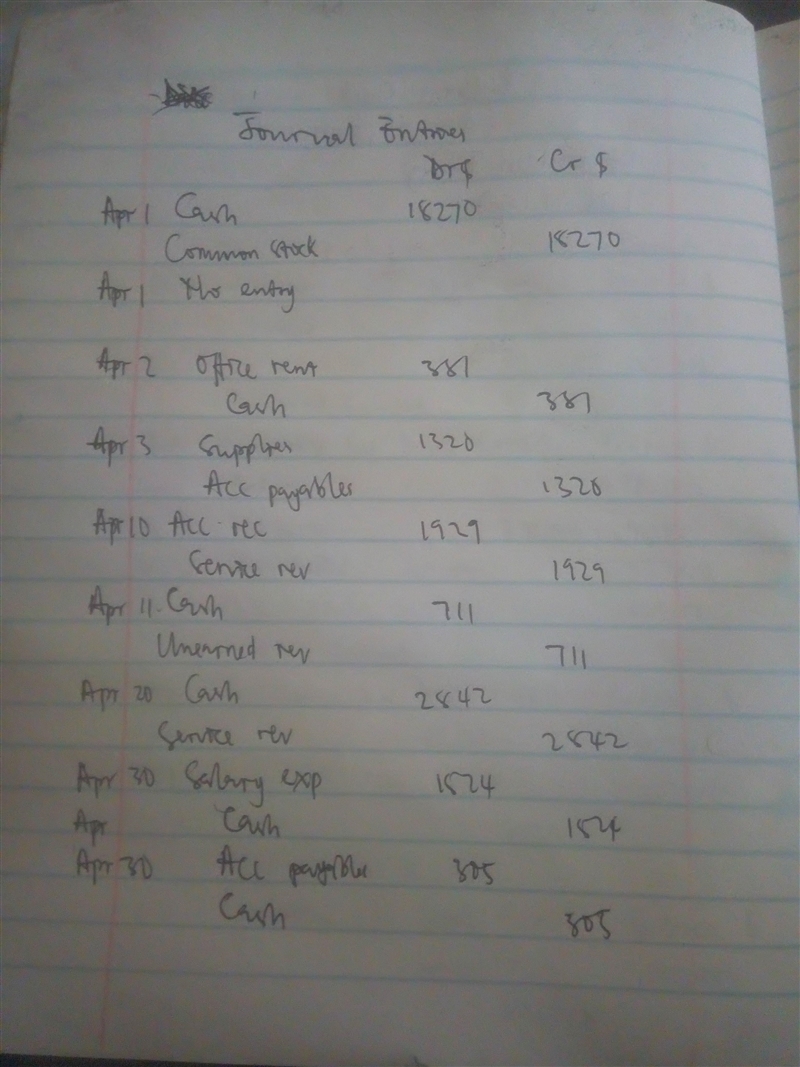 Journal Entries
Dr $ Cr $
Apr 1 Cash 18270
Common stock 18270
Apr 1 No entry
Apr 2 Office rent 381
Cash 381
Apr 3 Supplies 1320
Acc payables 1320
Apr 10 Acc. rec 1929
Service rev 1929
Apr 11. Cash 711
Unearned rev 711
Apr 20 Cash 2842
Service rev 2842
Apr 30 Salary exp 1524
Apr Cash 1524
Apr 30 Acc payables 305
Cash 305